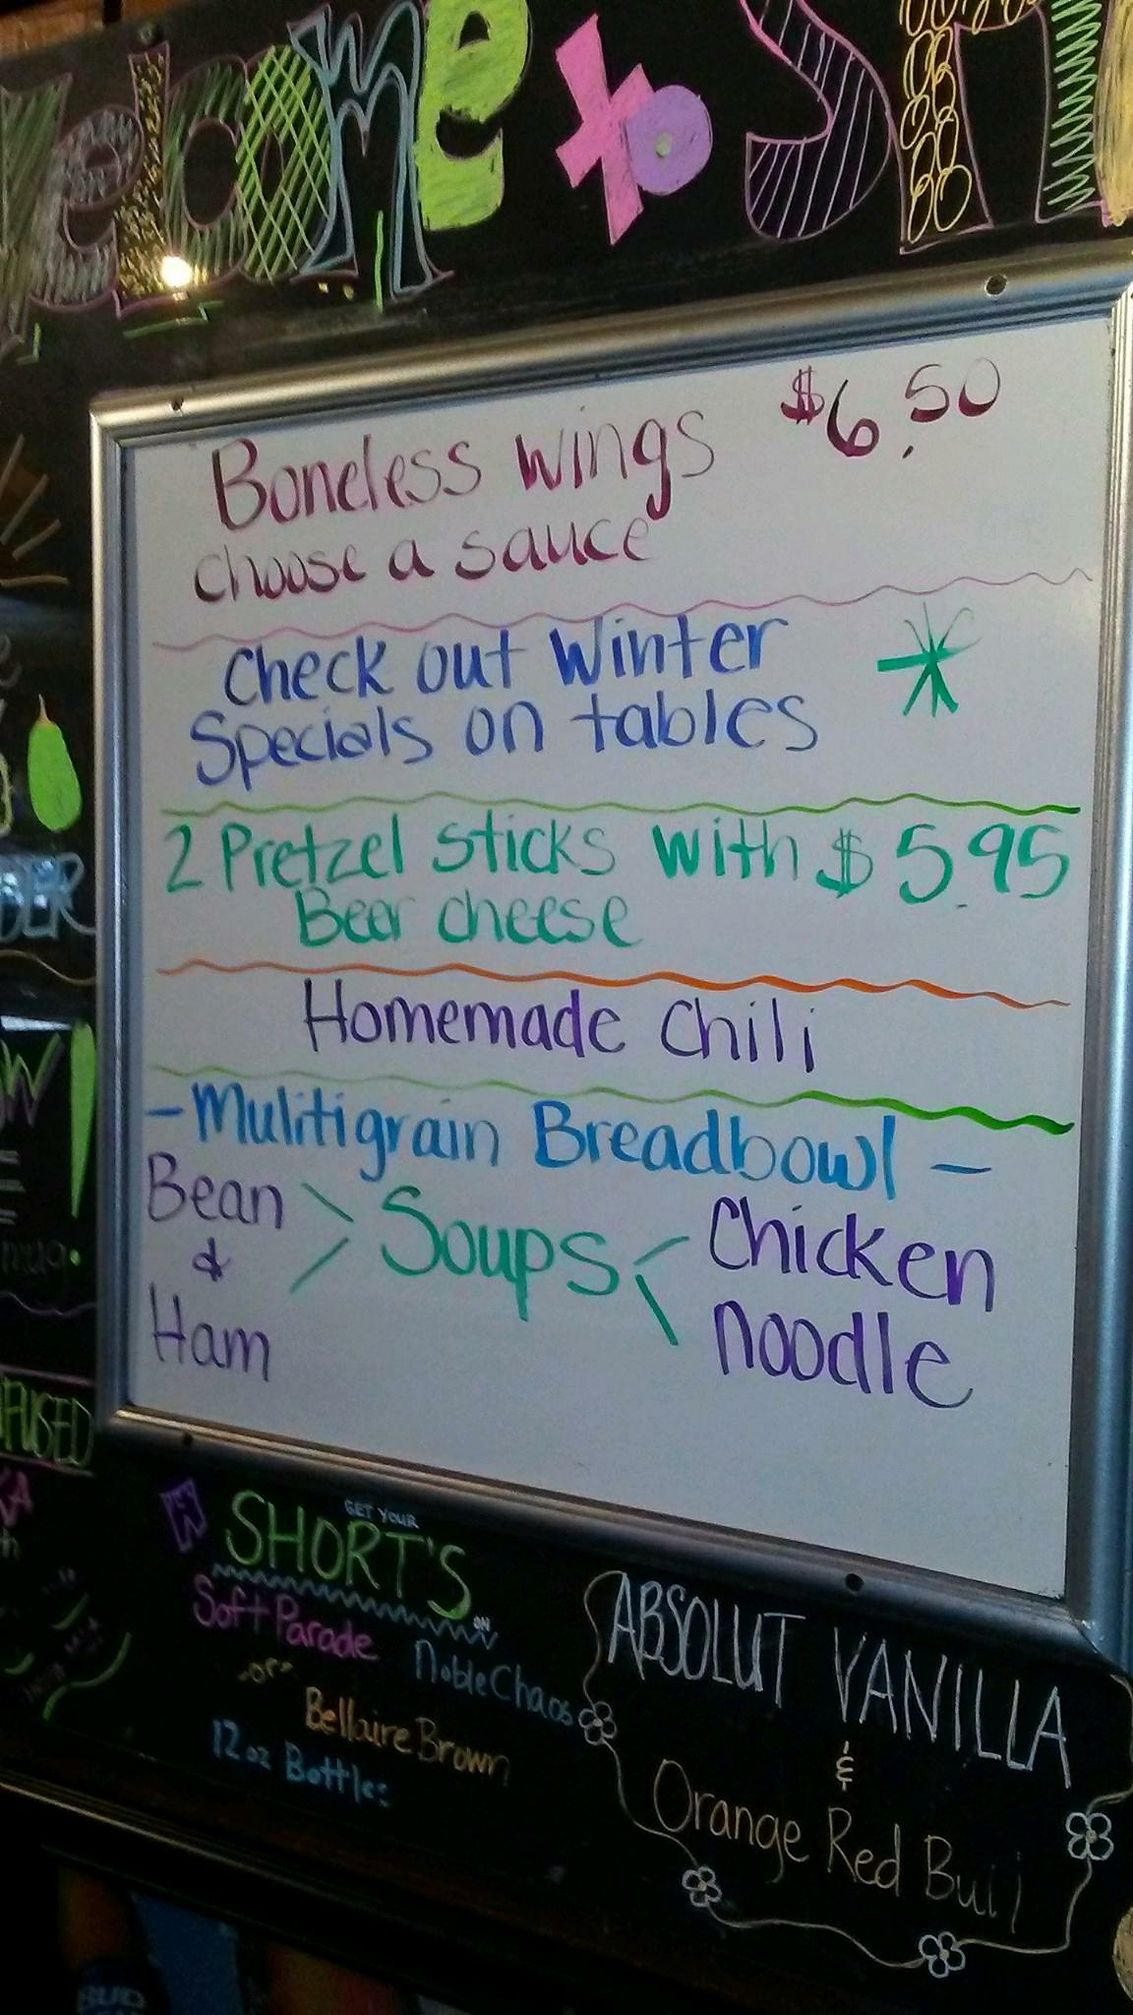 Welcome to
Boneless wings $6.50
choose a sauce
Check out Winter
Specials on tables
2 Pretzel sticks with $5.95
Beer cheese
Homemade Chili
- Mulitigrain Breadbowl -
Bean
&
Ham
Soups
Chicken
noodle
GET YOUR
SHORT'S
ON
Soft Parade
Noble Chaos
-or-
Bellaire Brown
12 oz Bottles
ABSOLUT VANILLA
&
Orange Red Bull
BUD